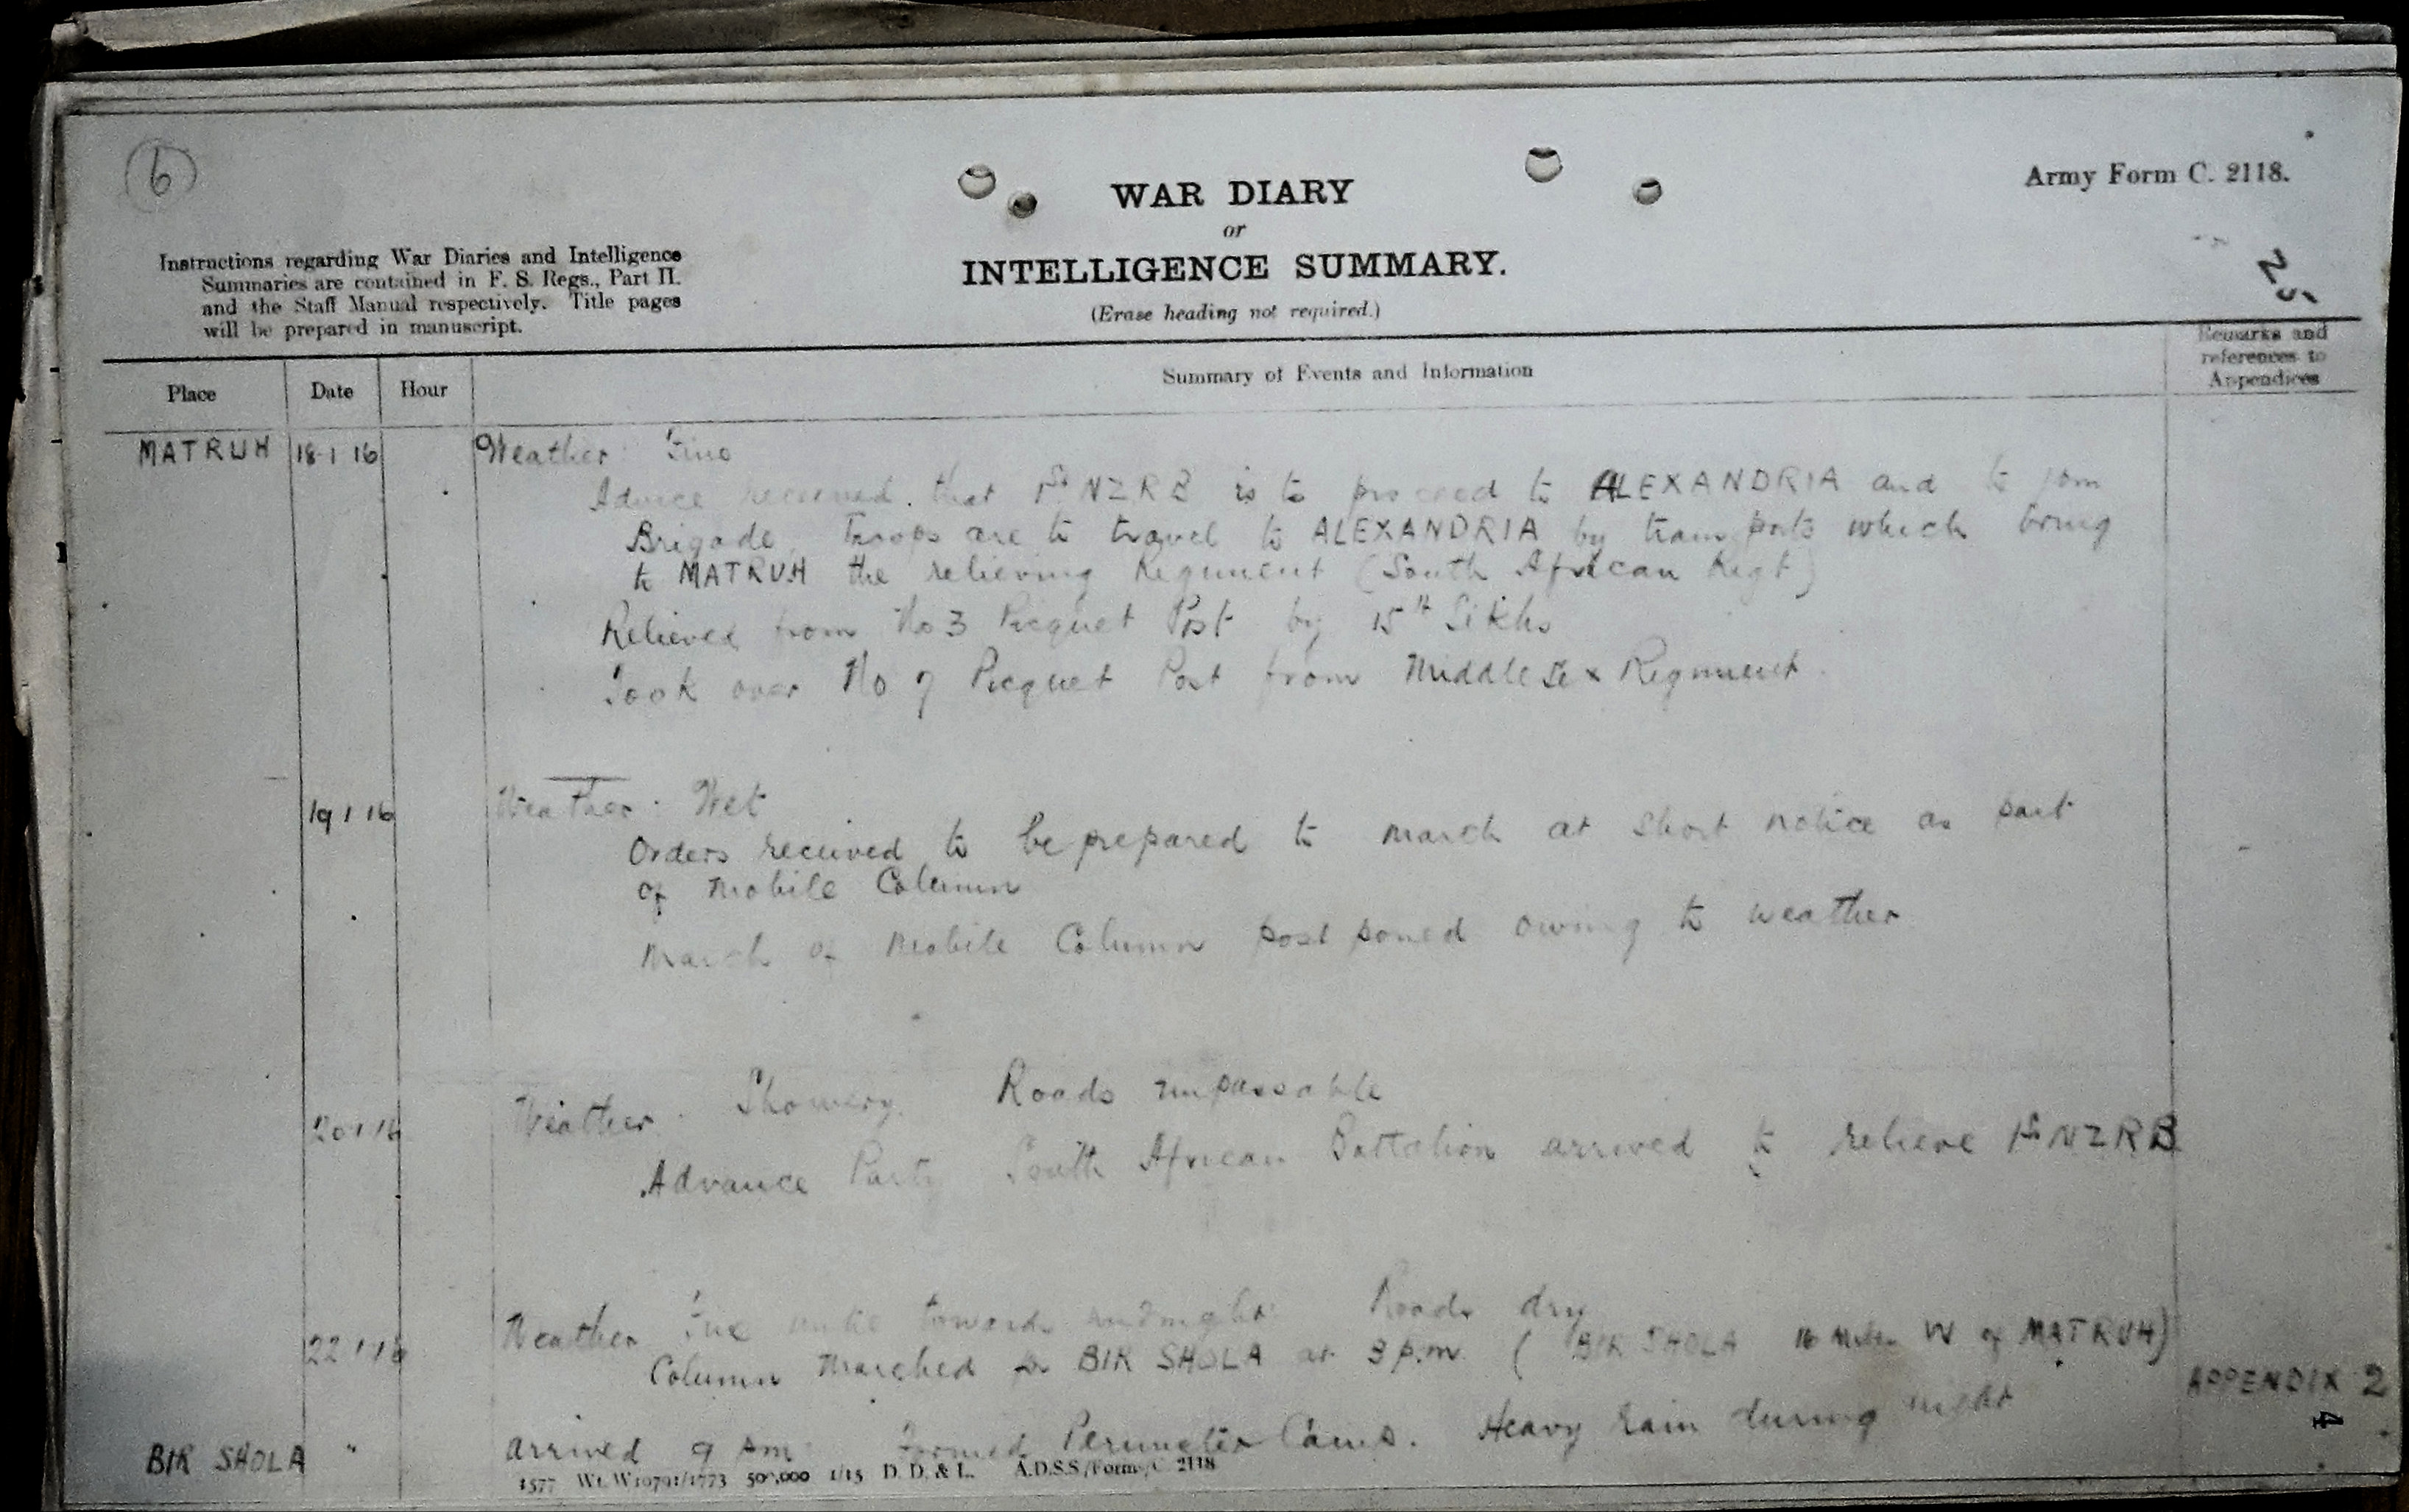 6
Army Form C. 2118.
WAR DIARY
or
INTELLIGENCE SUMMARY.
(Erase heading not required.)
25
Instructions regarding War Diaries and Intelligence
Summaries are contained in F. S. Regs., Part II.
and the Staff Manual respectively. Title pages
will be prepared in manuscript.
Place Date Hour Summary of Events and Information Remarks and
references to
Appendices
MATRUH 18 1 16 Weather Fine
Advice received that 1st NZRB is to proceed to ALEXANDRIA and to join
Brigade. Troops are to travel to ALEXANDRIA by transports which bring
to MATRUH the relieving Regiment (South African Regt)
Relieved from No 3 Picquet Post by 15th Sikhs
Took over No 7 Picquet Post from Middlesex Regiment.
19 1 16 Weather. Wet
Orders received to be prepared to march at short notice as part
of Mobile Column
March of Mobile Column postponed owing to weather
20 1 16 Weather. Showery. Roads impassable
Advance Party South African Battalion arrived to relieve 1st NZRB
22 1 16 Weather Fine until towards midnight Roads dry
Column marched for BIR SHOLA at 3 p.m. (BIR SHOLA 16 Miles W of MATRUH)
APPENDIX 2
4
BIR SHOLA " arrived 9 pm Formed Perimeter Camp. Heavy rain during night
1577 Wt.W10791/1773 500,000 1/15 D. D. & L. A.D.S.S./Forms/C. 2118